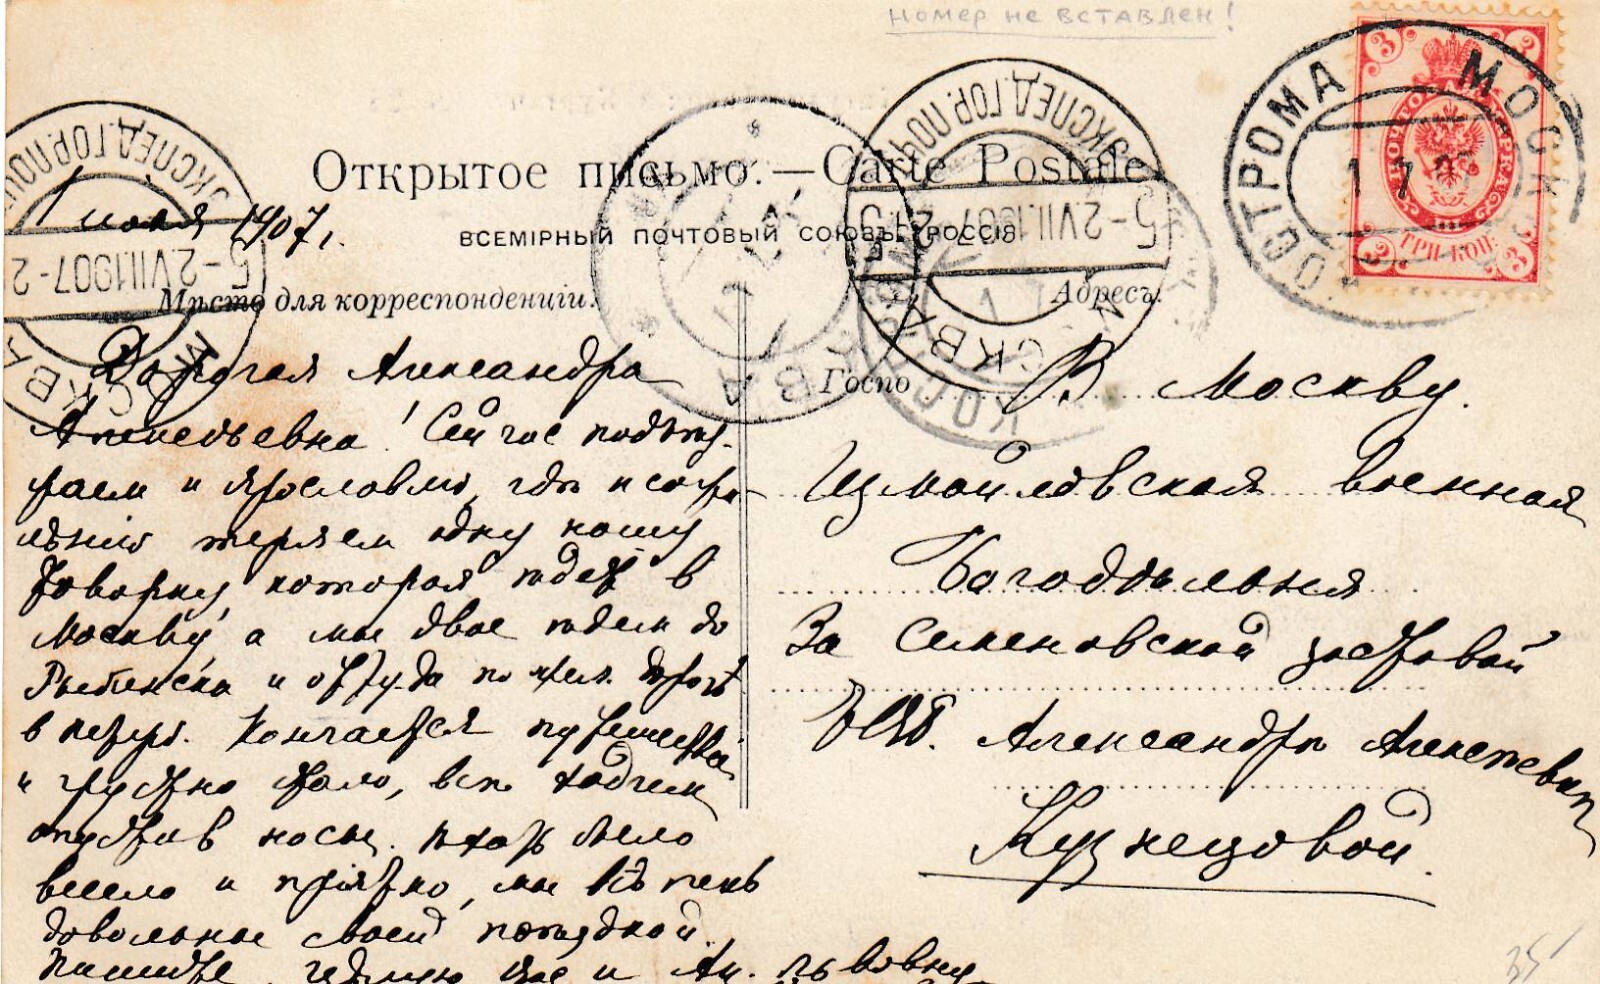 номер не вставлен!
Открытое письмо. — Carte Postale
ВСЕМІРНЫЙ ПОЧТОВЫЙ СОЮЗЪ. РОССІЯ
Мѣсто для корреспонденціи.
Адресъ.
Госпо
КОСТРОМА МОСК
1 7
ТРИ КОП.
3 3 3 3
МОСКВА
ЭКСПЕД.ГОР.ПОЧ
5-2VII.1907
МОСКВА
ЭКСПЕД.ГОР.ПОЧ
5-2VII.1907-2
1 июля 1907 г.
Дорогая Александра
Алексѣевна! Сейчас подъѣз-
жаем к Ярославлю, гдѣ к сожа-
лѣнію теряем одну нашу
которая ѣдет в
Москву, а мы двое ѣдем до
Рыбинска и оттуда по жел. дорогѣ
в Кончается путешествіе
и грустно стало, всѣ ходим
опустив носы. было
весело и пріятно, мы очень
довольны своей поѣздкой.
Пишите, цѣлую Вас и Ан. Львовну
В Москву.
Измайловская военная
Богодѣльня
За Семеновской заставой
ЕВБ. Александрѣ Алексѣевнѣ
Кузнецовой.
35